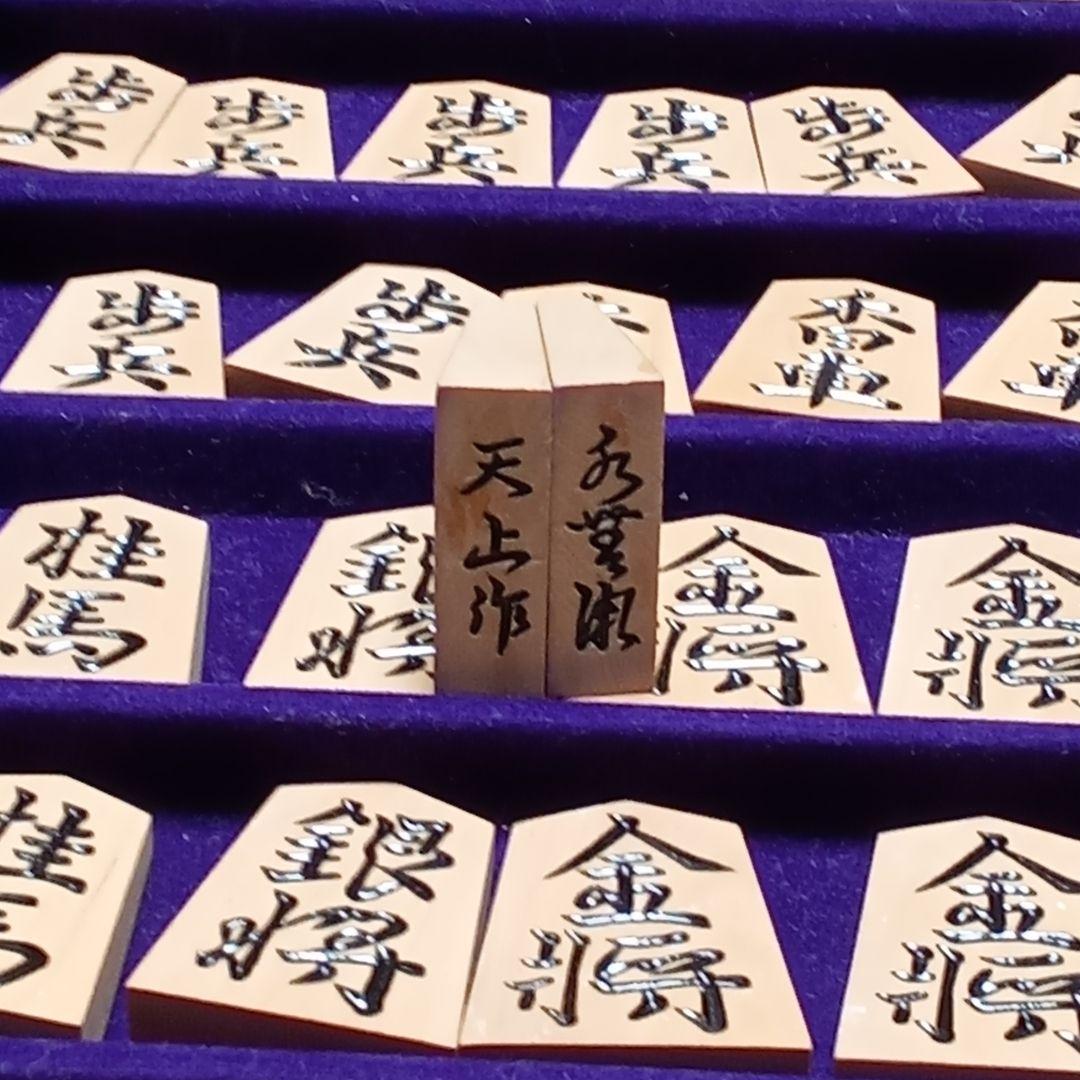 歩兵
歩兵
歩兵
歩兵
歩兵
歩兵
歩兵
香車
桂馬
銀将
金将
金将
天上作
水無瀬
桂馬
銀将
金将
金将